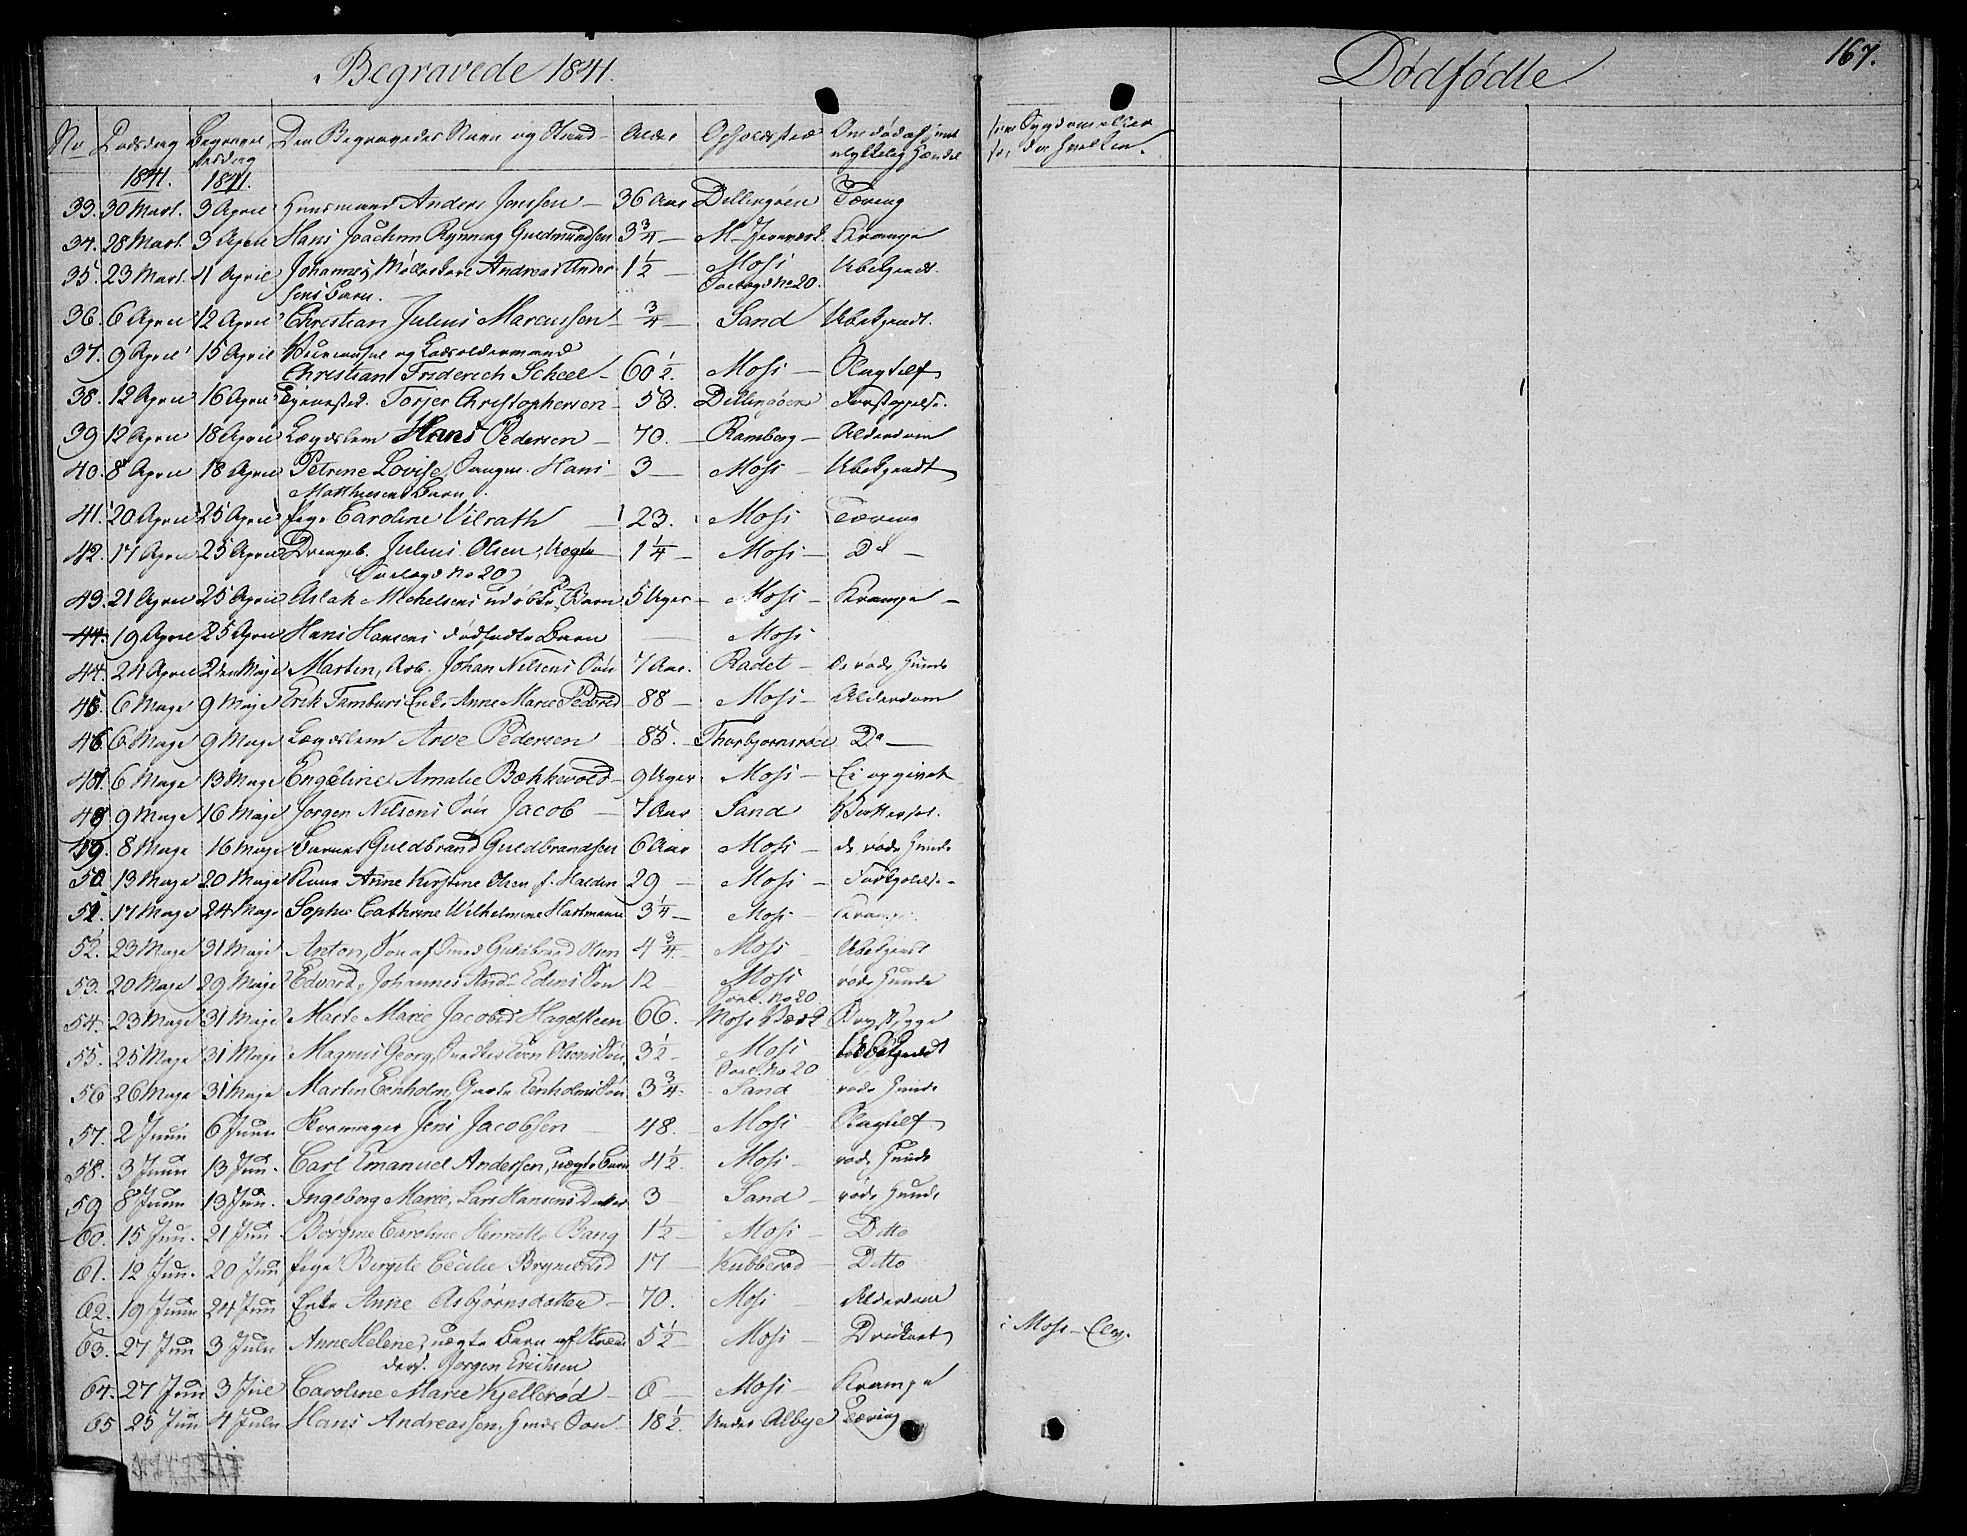 Begravede 1841.
Dødfødte
167.
No Dødsdag Begravelsesdag Den Begravedes Navn og Stand Alder Opholdssted Om død af ulykkelig Hændelse
1841. 1841.
33. 30 Mart. 3 April Huusmand Anders Jenssen 36 Aar Dillingøen Tæring
34. 28 Mart. 3 April Hans Joachim Rynning Guldmundsen 3 3/4 M. Jernværk Krampe
35. 23 Mart. 4 April Johannes, Andreas Ander- 1 1/2 Moss Ubekjendt
sens Barn. No 20.
36. 6 April 12 April Christian Julius Marcussen 3/4 Sand Ubekjendt.
37. 9 April 15 April og Lodsoldermand
Christian Friderich Scheel 60 1/2. Moss Slagtilf.
38. 12 April 16 April Torjer Christophersen 58. Dillingøen Forstoppelse.
39 12 April 18 April Lægdslem Hans Pedersen 70. Ramberg Alderdom
40. 8 April 18 April Petrine Lovise, Hans 3 Moss Ubekjendt
Matthiesens Barn.
41. 20 April 25 April Pige Caroline Vilrath 23. Moss Tæring
42. 17 April 25 April Drengeb. Julius Olsen, Uægte 1 1/4 Moss Do
No 20
43. 21 April 25 April Aslak Michelsens udøbte Barn 5 Uger Moss Krampe
44. 19 April 25 April Hans Hansens dødfødte Barn Moss
44. 24 April 2den Maje Martin, Arb. Johan Nilsens Søn 7 Aar. Radet De røde Hunde
45. 6 Maje 9 Maje Erik Tamburs Enke Anne Marie Pedersd 88 Moss Alderdom
46. 6 Maje 9 Maje Lægdslem Arve Pedersen 85. Thorbjørnsrød Do
47. 6 Maje 13 Maje Engeline Amalie Bækkevold 9 Uger Moss Ei opgivet
48 9 Maje 16 Maje Jørgen Nilsens Søn Jacob 7 Aar Sand
49. 8 Maje 16 Maje Guldbrand Guldbrandsen 6 Aar Moss de røde Hunde
50. 13 Maje 20 Maje Kone Anne Kirstine Olsen f. Halden 29 Moss
51. 17 Maje 24 Maje Sophie Cathrine Wilhelmine Hartmann 3 1/4 Moss Krampe
52. 23 Maje 31 Maje Anton, Søn af Smed Guldbrand Olsen 4 3/4. Moss Ubekjendt
53. 20 Maje 29 Maje Edvard, Johannes And. Edens Søn 12 Moss røde Hunde
No 20
54. 23 Maje 31 Maje Marte Marie Jacobsd Hagelsteen 66. Moss Værk Brystsyge
55. 25 Maje 31 Maje Magnus Georg, Even Olsens Søn 3 1/2 Moss Ubekjendt
No 20
56 26 Maje 31 Maje Marten Eenholm, Eenholms Søn 3 3/4. Sand røde Hunde
57. 2 Juni 6 Juni Skomager Jens Jacobsen 48. Moss Slagtilf.
58. 3 Juni 13 Jun. Carl Emanuel Andersen, uægte Barn 4 1/2. Moss røde Hunde
59 8 Juni 13 Jun. Ingeborg Marie, Lars Hansens Datter 3 Sand røde Hunde
60. 15 Jun. 21 Jun Caroline Henriette Bang 1 1/2 Moss Ditto
61. 12 Jun. 20 Jun Pige Birgite Cecilie Brynildsd 17 Kubberød Ditto
62. 19 Juni 24 Jun Enke Anne Asbjørnsdatter 70. Moss Alderdom
63. 27 Jun 3 Julii Anne Helene, uægte Barn af 5 1/2 Moss Druknet i Moss-Elv.
Jørgen Erichsen
64. 27 Jun 3 Jul Caroline Marie Kjellerød 6 Moss Krampe
65 25 Jun 4 Julii Hans Andreassen, Søn 18 1/2. Under Albye Tæring